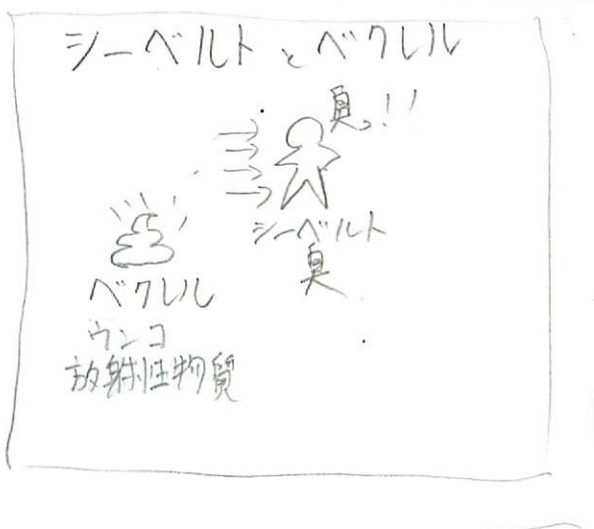 シーベルトとベクレル
臭!!
シーベルト
臭
ベクレル
ウンコ
放射性物質